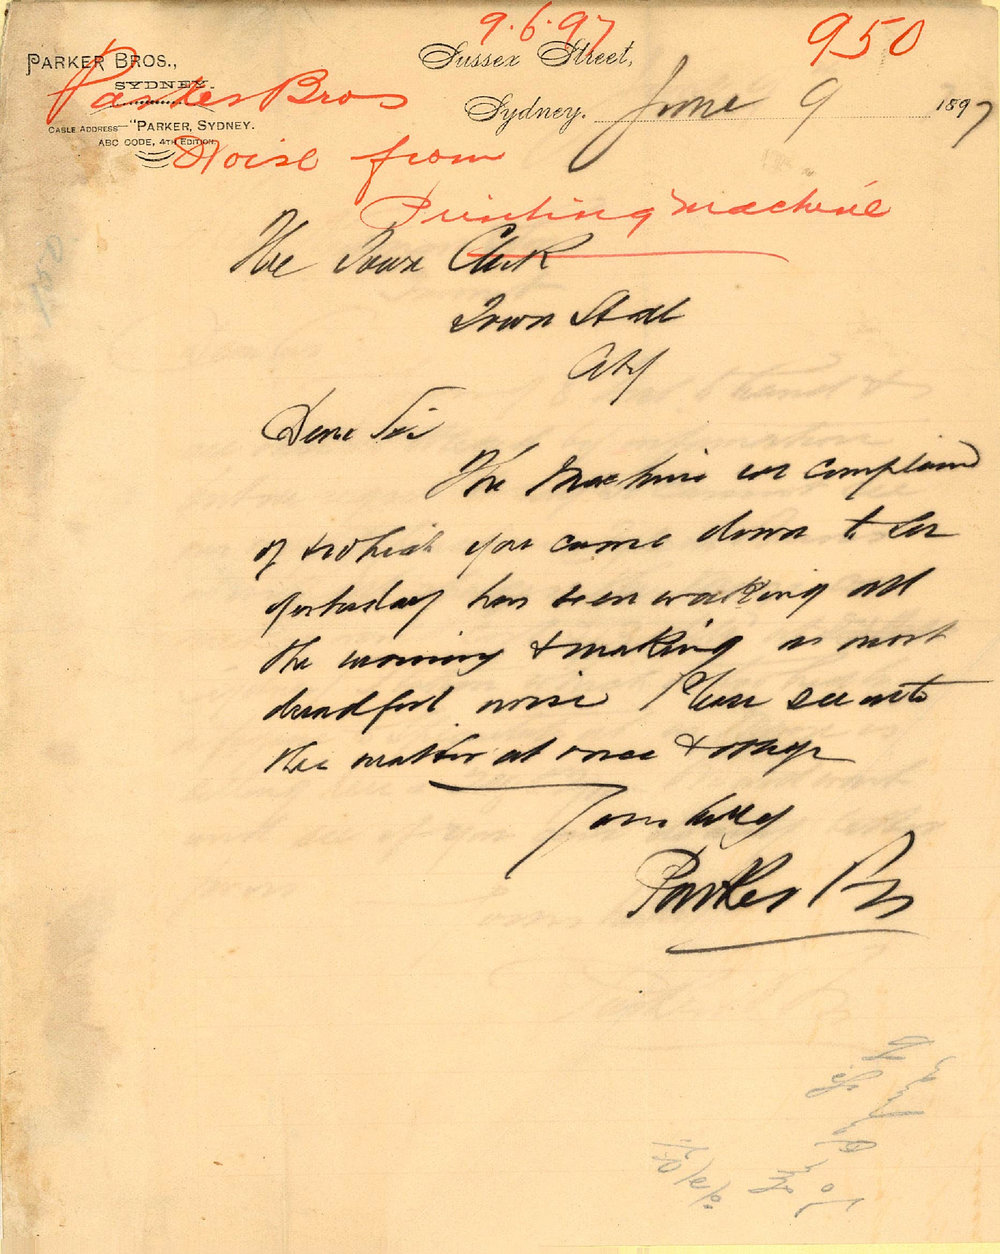 9.6.97
950
PARKER BROS.,
SYDNEY.
Sussex Street,
Parker Bros
Sydney. June 9 1897
CABLE ADDRESS—"PARKER, SYDNEY.
ABC CODE, 4TH EDITION.
Noise from
Printing Machine
The Town Clerk
Town Hall
City
Dear Sir
The Machine we complain
of & which you came down to see
yesterday has been working all
the morning & making a most
dreadful noise Please see into
the matter at once & oblige
Yours truly
Parker Bros